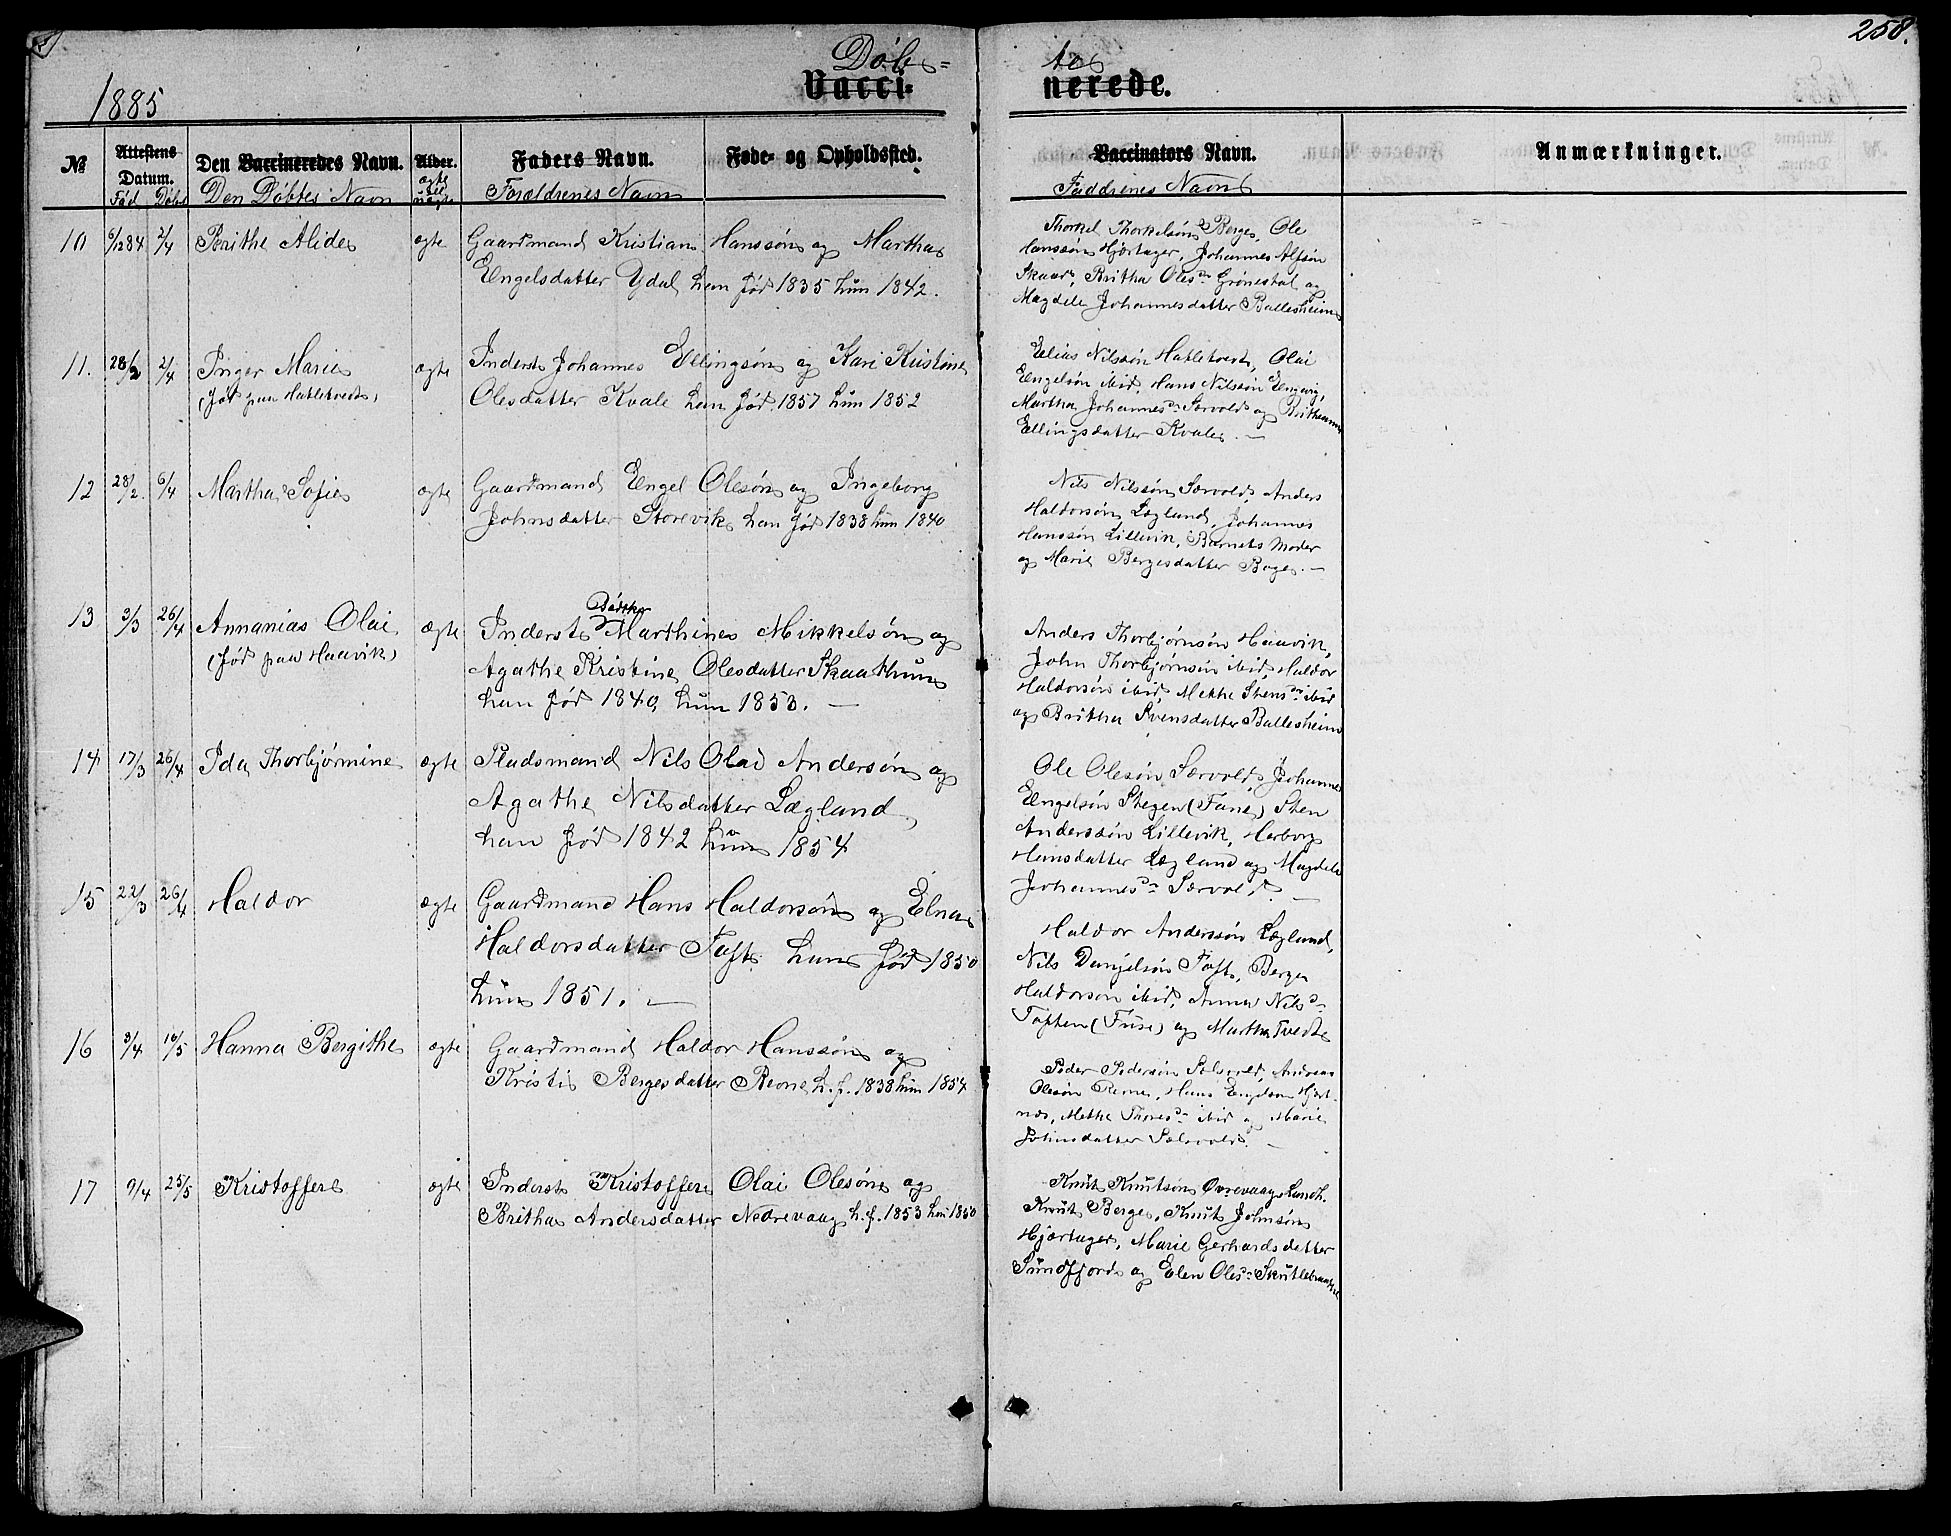 258.
Døb= te
Vacci= nerede.
1885
№
Attestens Datum.
Den Vaccineredes Navn.
Alder.
Faders Navn.
Føde- og Opholdssted.
Vaccinators Navn.
Anmærkninger.
Fød Døbt
Den Døbtes Navn
ægte el. uægte
Forældrenes Navn
Faddrenes Navn
10 6/12 84 2/4 Brithe Alide ægte Gaardmand Kristian Hanssøn og Martha
Engelsdatter Ydal han fød 1835 hun 1842.
Thorkel Thorkelsøn Berge, Ole
Hanssøn Hjertager, Johannes Alfsøn
Skaar, Britha Olesdr Grønestøl og
Magdele Johannesdatter Ballesheim
11. 28/2 2/4 Inger Marie ægte Inderst Johannes Ellingsøn og Kari Kristine
(fød paa Hatletvedt) Olesdatter Kvale han fød 1857 hun 1852
Elias Nilssøn Hatletvedt, Olai
Engelsøn ibid, Hans Nilssøn Engevig,
Martha Johannesdr Sævold og Britheanna
Ellingsdatter Kvale. —
12 28/2. 6/4 Martha Sofie ægte Gaardmand Engel Olesøn og Ingeborg
Johnsdatter Storevik han fød 1838 hun 1840
Nils Nilssøn Sævold, Anders
Haldorsøn Lægland, Johannes
Hanssøn Lillevik, Barnets Moder
og Marie Bergesdatter Boge. —
13 3/3 26/4 Annanias Olai ægte Inderst Bødtker Marthines Mikkelsøn og
(fød paa Haavik) Agathe Kristine Olesdatter Skaathun
han fød 1840, hun 1853. —
Anders Thorbjørnsøn Haavik,
John Thorbjørnsøn ibid, Haldor
Haldorsøn ibid, Methe Stensdr ibid
og Britha Svensdatter Ballesheim
14 17/3 26/4 Ida Thorbjørnine ægte Pladsmand Nils Olai Andersøn og
Agathe Nilsdatter Lægland
han fød 1842 hun 1854
Ole Olesøn Sævold, Johannes
Engelsøn Stegen (Fane) Sten
Anderssøn Lillevik, Herborg
Hansdatter Lægland og Magdele
Johannesdr Sævold. —
15 22/3 26/4 Haldor ægte Gaardmand Hans Haldorsøn og Elna
Haldorsdatter Toft han fød 1850
hun 1851. —
Haldor Anderssøn Lægland,
Nils Danjelsøn Toft, Berge
Haldorsøn ibid, Anna Nilsdr
Toften (Fuse) og Martha Tvedte
16 3/4 10/5 Hanna Bergithe ægte Gaardmand Haldor Hanssøn og
Kristi Bergesdatter Revne h. f. 1838 hun 1854
Peder Pedersøn Sævold, Andreas
Olesøn Revne, Hans Engelsøn Hjert-
næs, Methe Thoresdr ibid og Marie
Johnsdatter Sælevold. —
17 9/4 25/5 Kristoffer ægte Inderst Kristoffer Olai Olesøn og
Britha Andersdatter Nedrevaage h. f. 1853 hun 1850
Knut Knutsøn Øvrevaage Lundh.
Knut Berge, Knut Johnsøn
Hjertager, Marie Gerhardsdatter
Sundfjord og Elen Olesdr Skutlebrandal